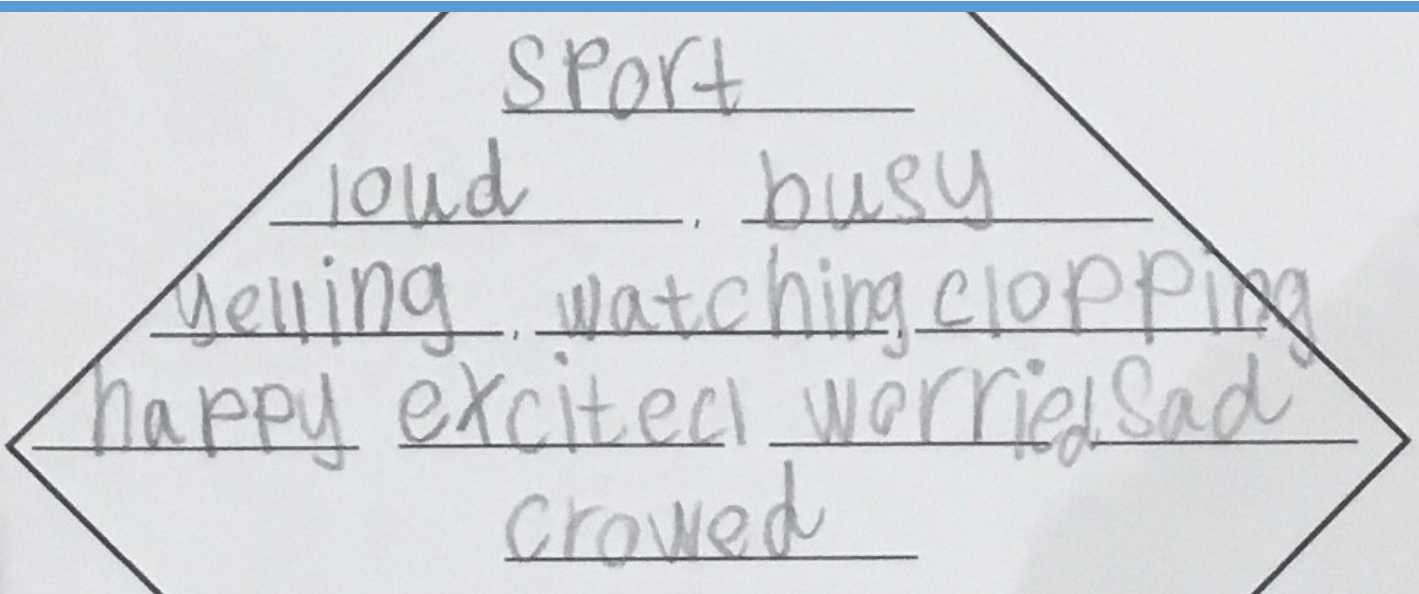 sport
loud, busy
yelling, watching, clopping
happy excited worried sad
crowed